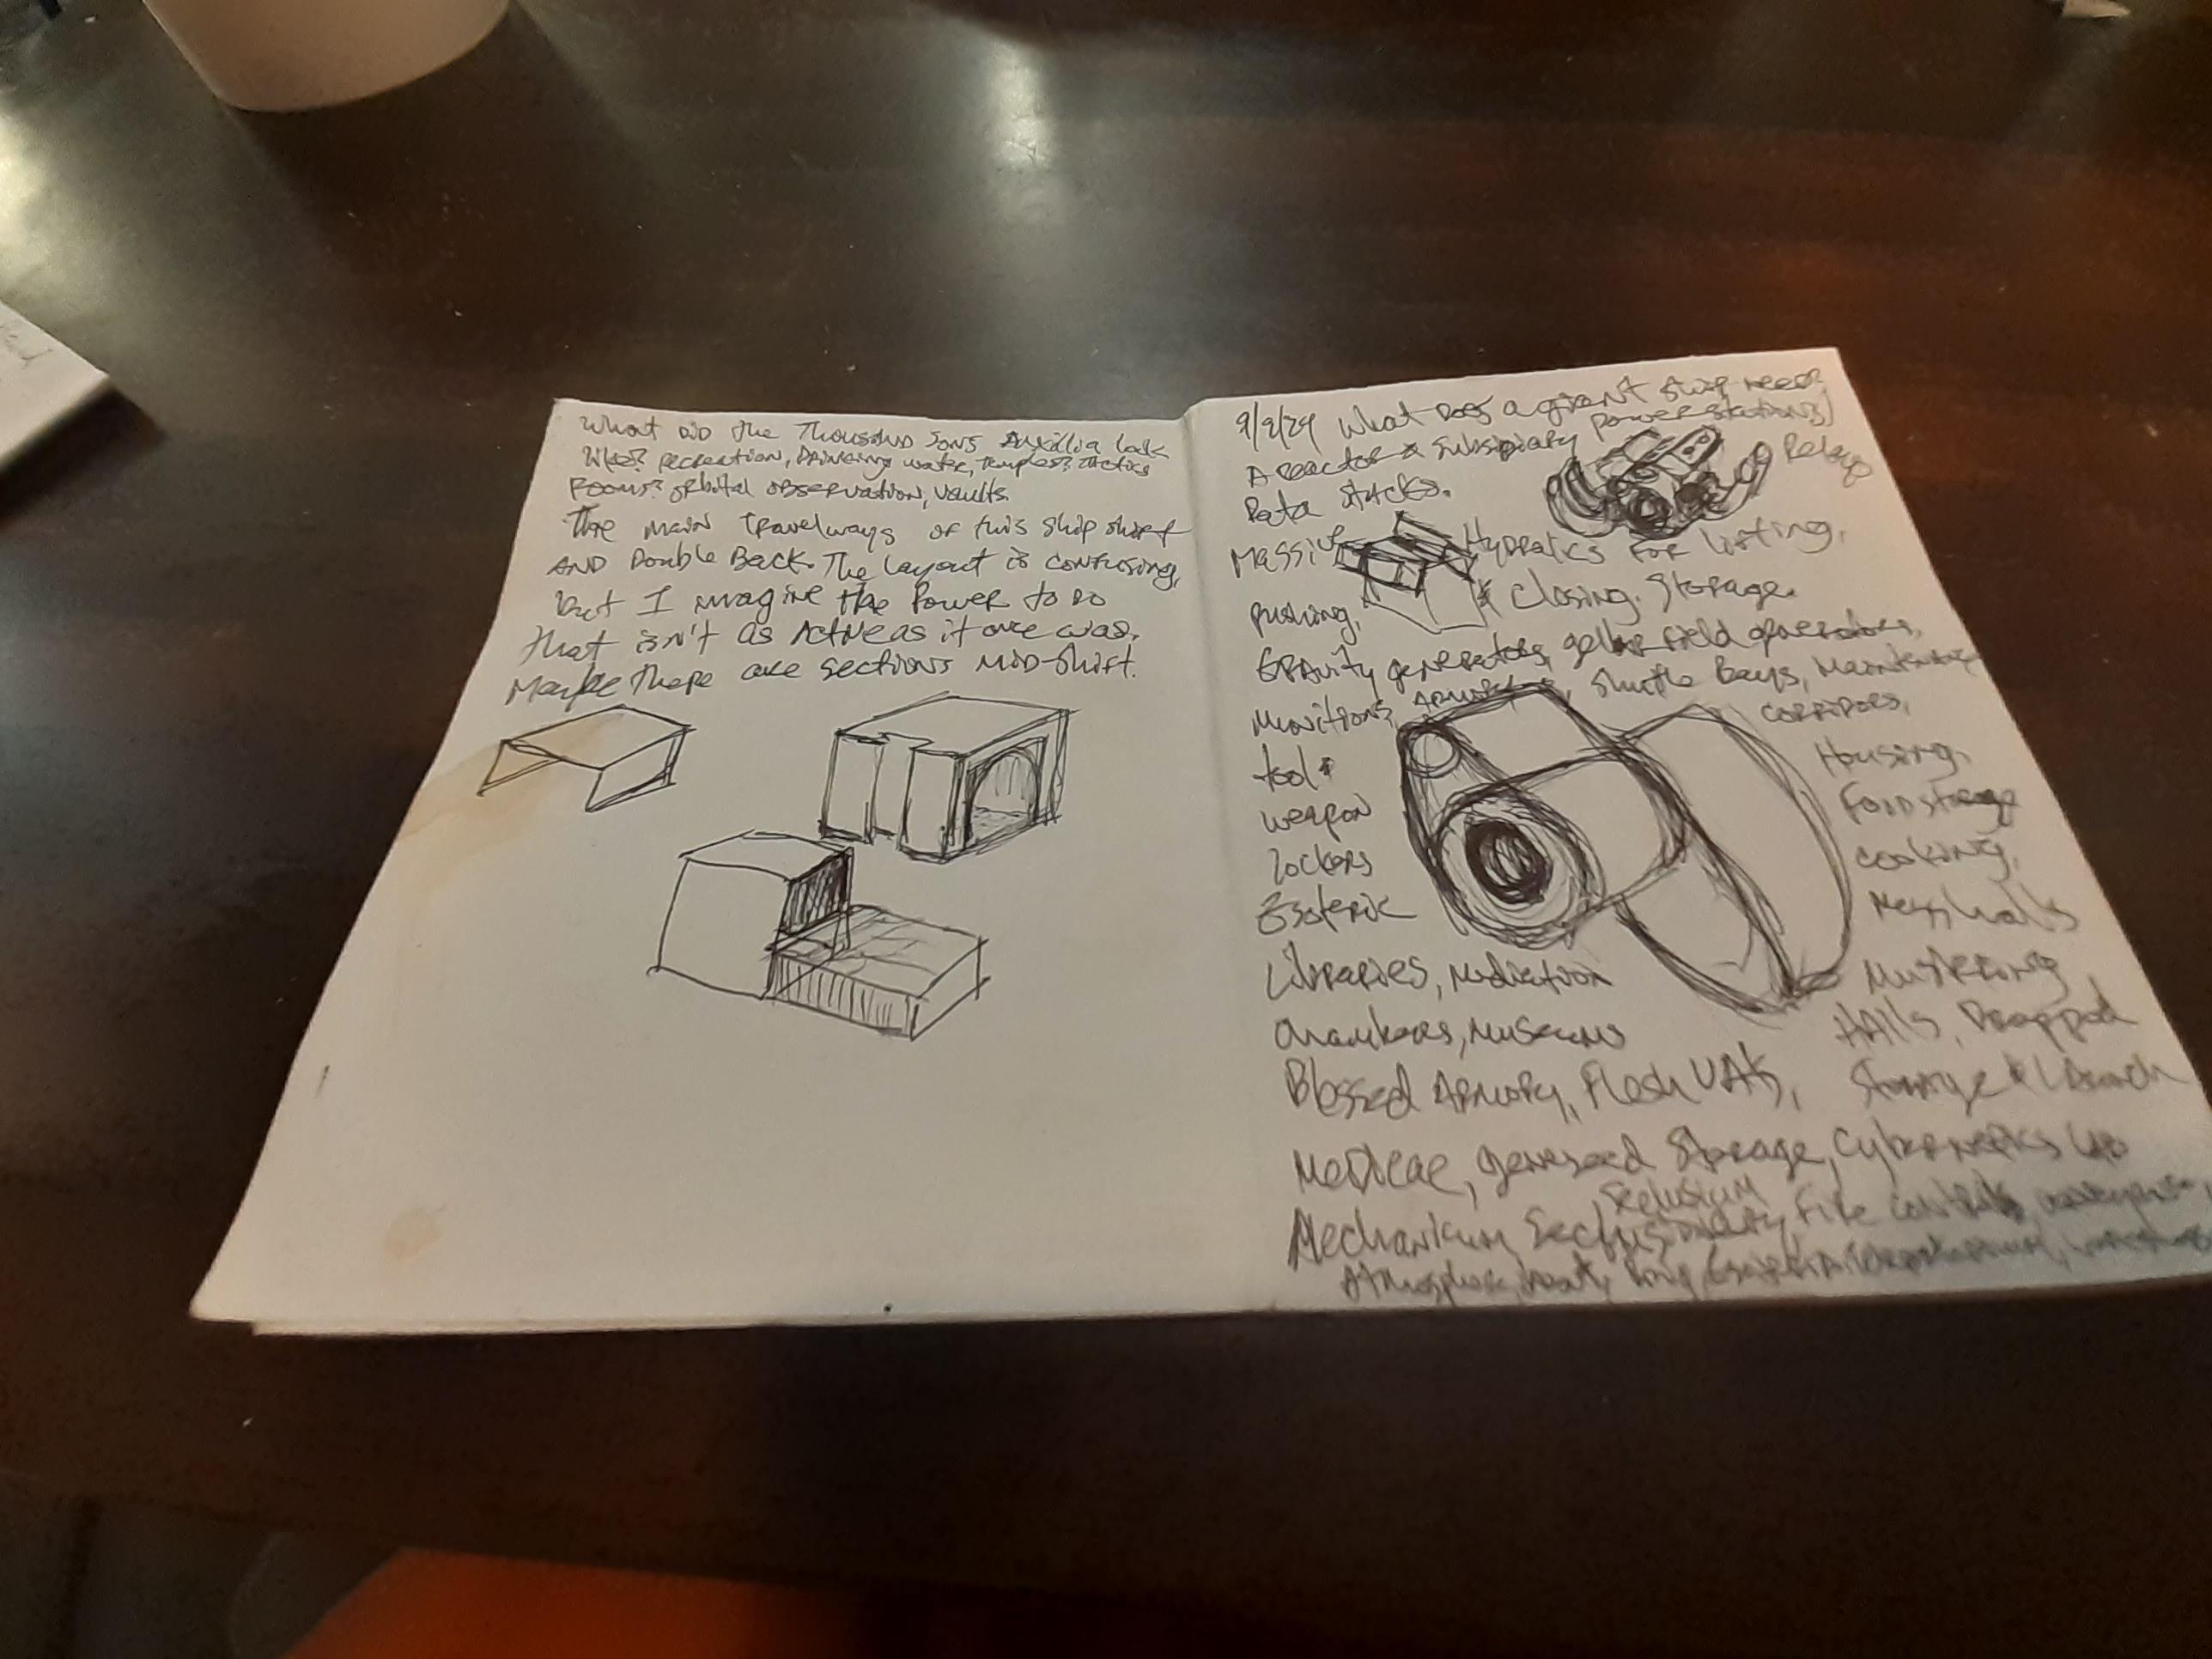 What did the Thousand Sons Auxillia look
like? recreation, Drinking water, Temples? Tactics
Rooms? orbital observation, vaults.
The main travelways of this ship shift
AND Double Back. The layout is confusing,
but I imagine the Power to do
that isn't as Active as it once was.
Maybe there are sections MID-Shift.
9/9/24 What Does a giant ship need?
A reactor & Subsidiary power stations
Relays
Data stacks.
Massive Hydralics for lifting,
pushing, & Closing. Storage.
Gravity generators, gellar field generators,
Munitions, Armory, Shuttle Bays, Maintenance
corridors,
tool &
weapon
lockers
Esoteric
Libraries, Mediation
Chambers, Museums
Housing,
Food storage
cooking,
Mess halls
Mustering
Halls, Droppod
Storage & Launch
Blessed Armory, Flesh VATs,
Medicae, geneseed Storage, Cybernetics Lab
Seclusium
Mechanicum Fire controls,
Atmosphere, Brig,